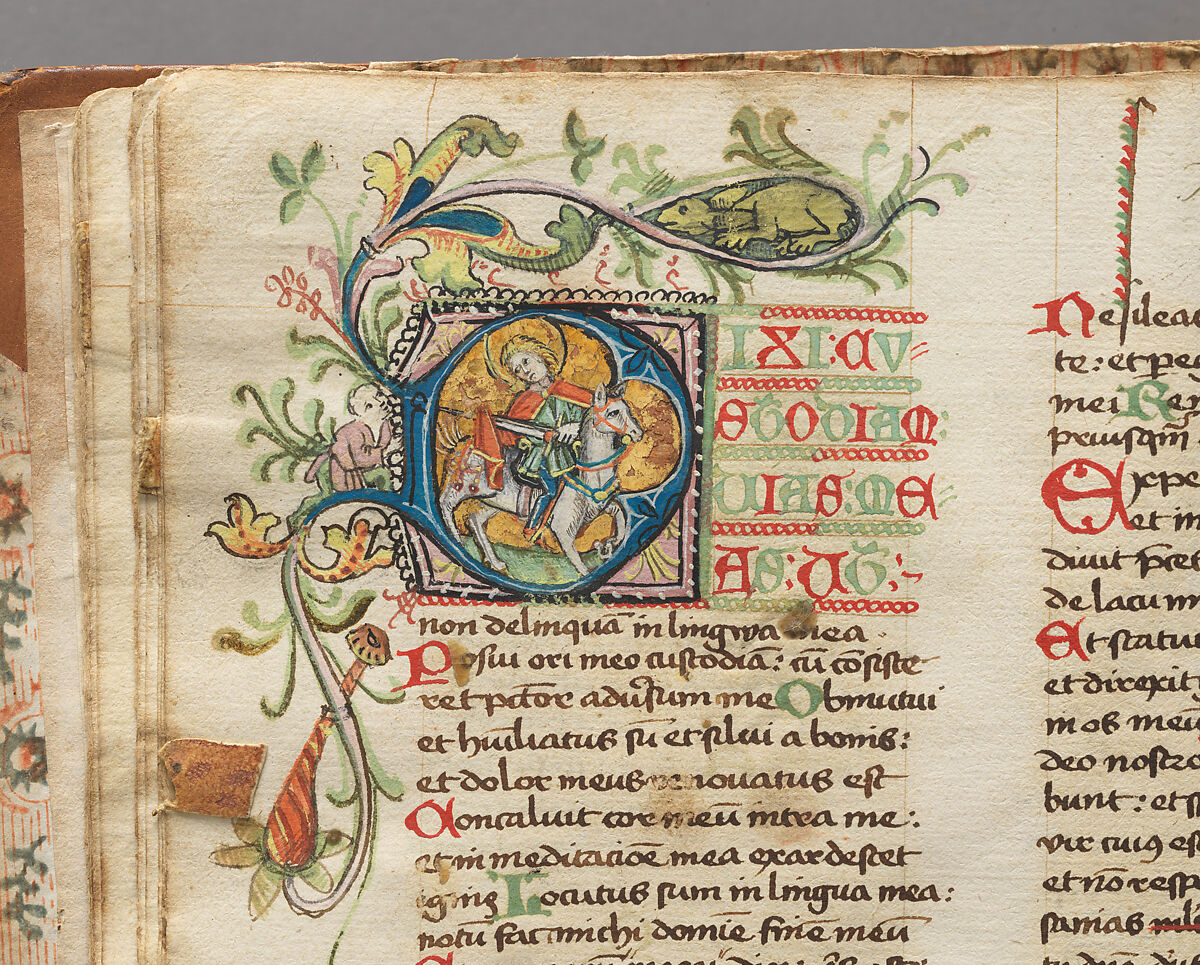 DIXI: CU
STODIAM
VIAS: ME
AS: UT:
non delinquā in lingwa mea
Posui ori meo custodiā: cū cōsiste
ret pctor adusum me Obmutui
et huīliatus sū et silui a bonis:
et dolor meus renovatus est
Concaluit cor meū intra me:
et in meditacioē mea exardescet
ignis Locutus sum in lingua mea:
notū fac michi domīe finē meū
Ne sileas
te: et pere
mei Rem
priusqm
Expe
et in
divit p̄ces
de lacu m
Et statui
et direxit
in os meū
deo nostro
bunt: et s
vir cui9 es
et nō resp
sanias